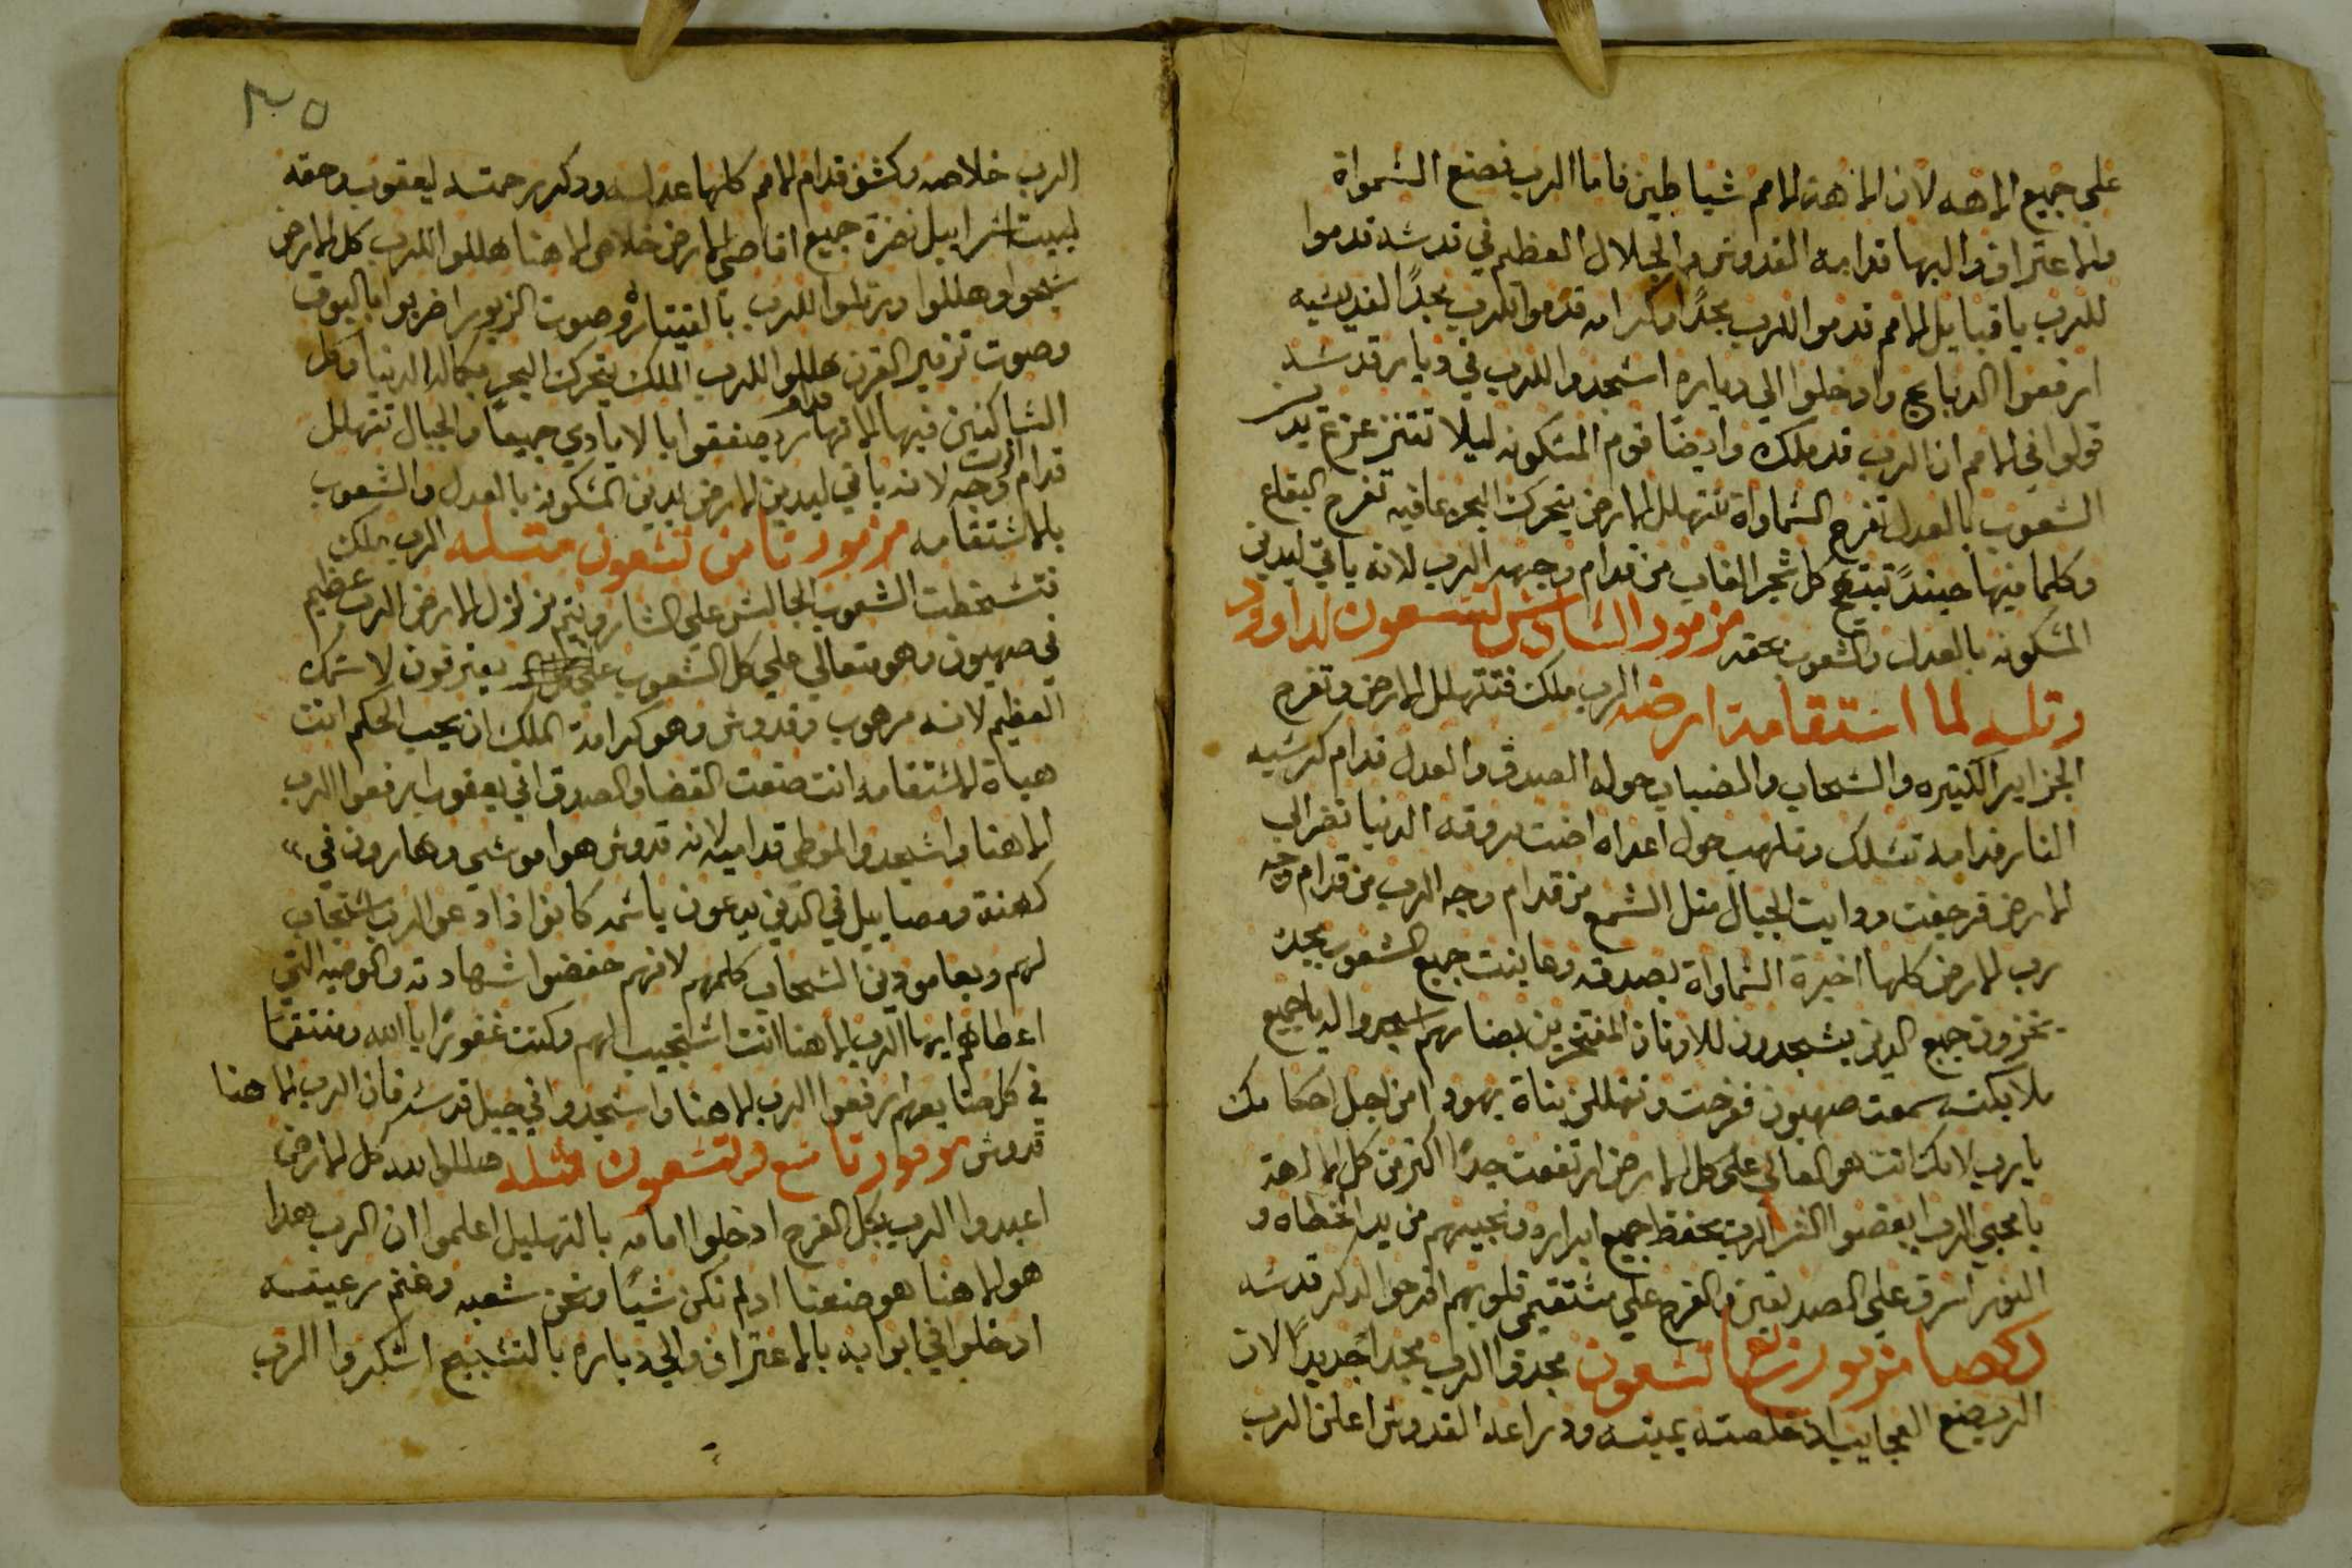 على جميع الالهه لان الاهة الامم شياطين فاما الرب فصنع السمواة
والاعتراف والبها قدامه القدوس والجلال العظيم في قدسه قدموا
للرب يا قبايل الامم قدموا للرب مجدًا وكرامه قدموا للرب مجدًا لقديسيه
ارفعوا الدبايح وادخلوا الي دياره اسجدوا للرب في ديار قدسه
قولوا في الامم ان الرب قد ملك وايضًا قوم المسكونه ليلا تتزعزع يدين
الشعوب بالعدل تفرح السماواة تتهلل الارض يتحرك البحر بما فيه تفرح البقاع
وكلما فيها حينيدً تبتهج كل شجر الغاب من قدام وجهه الرب لانه ياتي ليدين
المسكونه بالعدل والشعوب بحقه مزمور السادس تسعون لداوود
وتله لما استقامة ارضه الرب ملك فتتهلل الارض وتفرح
الجزاير الكتيره والسحاب والضباب حوله الصدق والعدل قدام كرسيه
النار قدامه تسلك وتلهب حول اعداه اضت بروقه الدنيا نظر الي
الارض فرجفت ودابت الجبال متل الشمع من قدام وجه الرب من قدام وجه
رب الارض كلها اخبرة السماواة بصدقه وعاينت جميع الشعوب مجده
يخزون جميع الدين يسجدون للاوتان المفتخرين بضارهم اسجدوا له يا جميع
ملايكته سمعت صهيون ففرحت وتهللن بناة يهودا من اجل احكامك
يا رب لانك انت هو العالي على كل الارض ارتفعت جدًا اكتر من كل الالهة
يا محبي الرب ابغضوا الشر الرب يحفظ جميع ابراره وينجيهم من يد الخطاه و
النور اشرق علي الصديقين والفرح علي مستقيمي قلوبهم افرحوا لدكر قدسه
مزمور تسعون مجدوا الرب مجدًا جديدًا لان
الرب صنع العجايب اد خلصته يمينه ودراعه القدوس اعلن الرب
٢٠٥
الرب خلاصه وكشف قدام الامم كلها عدله ودكر رحمته ليعقوب وحقه
لبيت اسراييل نضرة جميع اقاصي الارض خلاص الاهنا هللوا للرب كل الارض
سبحوا وهللوا ورتلوا للرب بالقيتاره وصوت الزبور اضربوا بالبوق
وصوت تزمير القرن هللوا للرب الملك يتحرك البحر بكماله الدنيا وكل
الساكنين فيها الانهار يصفقوا بالايادي جميعًا والجبال تتهلل
قدام وجه الرب لانه ياتي ليدين الارض يدين المسكونه بالعدل والشعوب
بالاستقامه مزمور تامن تسعون متله الرب ملك
فتسخطت الشعوب الجالس علي الشاروبيم تزلزل الارض الرب عظيم
في صهيون وهو متعالي علي كل الشعوب يعترفون لاسمك
العظيم لانه مرهوب وقدوس وهو كرامة الملك ان يحب الحكم انت
هياة الاستقامه انت صنعت القضا والصدق في يعقوب ارفعوا الرب
الاهنا واسجدوا لموطي قداميه لانه قدوس هوا موسي وهارون في
كهنة وصاييل في الدين يدعون باسمه كانوا اذا دعوا الرب استجاب
لهم وبعامودين السحاب كلمهم لانهم حفضوا شهادته والوصيه التي
اعطاهم ايها الرب الاهنا انت استجيب لهم وكنت غفورًا يا الله ومنتقمًا
في كل صنايعهم ارفعوا الرب الاهنا واسجدوا في جبل قدسه فان الرب الاهنا
قدوس مزمور تاسع وتسعون متله هللوا لله كل الارض
اعبدوا الرب بكل الفرح ادخلوا امامه بالتهليل اعلموا ان الرب هدا
هو الاهنا هو صنعنا اد لم نكن شيًا ونحن شعبه وغنم رعيته
ادخلوا في ابوابه بالاعتراف والي دياره بالتسبيح اشكروا الرب